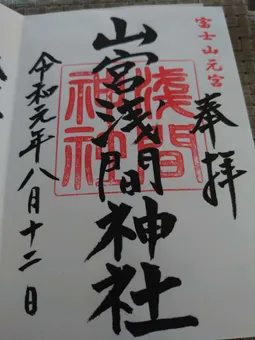 富士山元宮
奉拝
山宮浅間神社
淺間神社
令和元年八月十二日